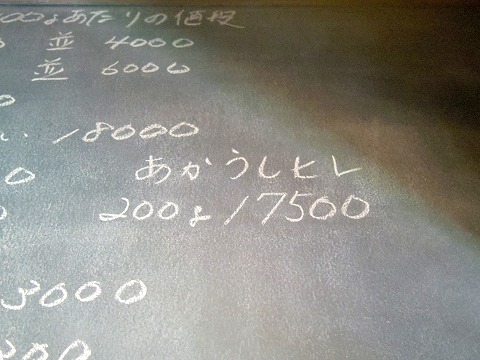 00gあたりの価段
0 並 4000
並 6000
0
い 18000
0 あかうしヒレ
0 200g 17500
3000
300